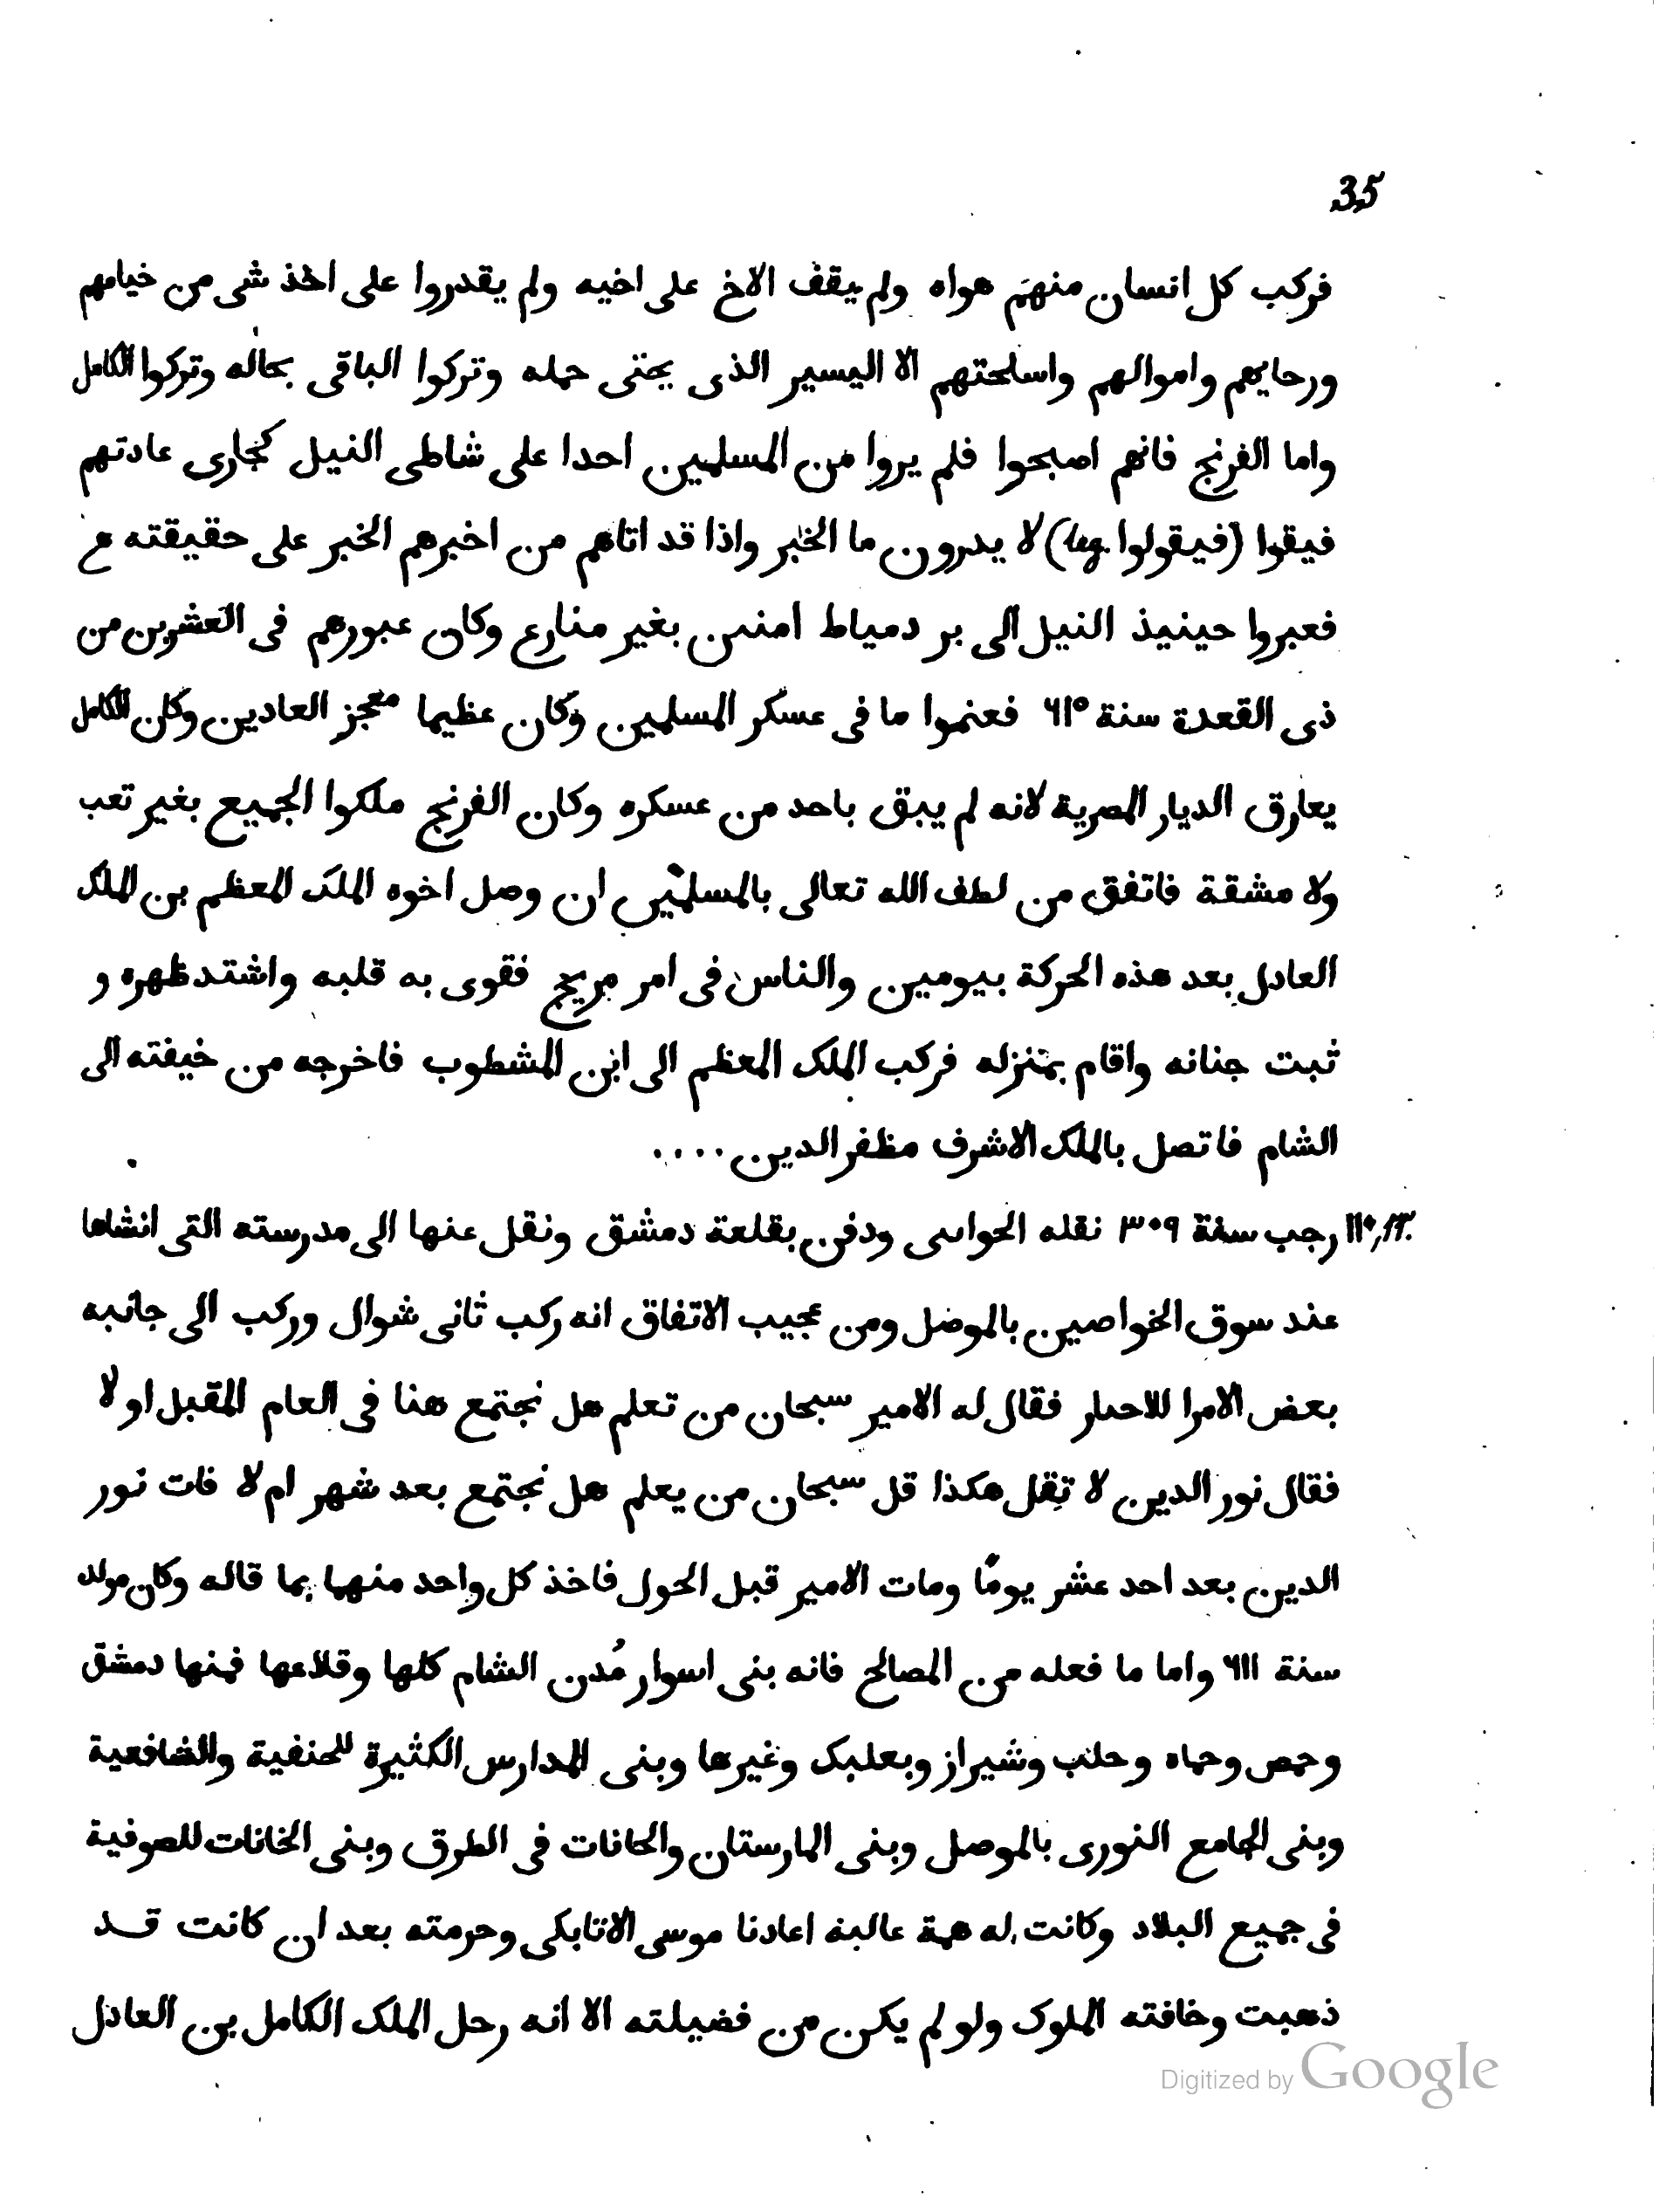 35
فركب كل انسان منهم هواه ولم يقف الاخ على اخيه ولم يقدروا على اخذ شى من خيامهم
ورحايهم واموالهم واسلحتهم الا اليسير الذى يخنى حمله وتركوا الباقى بحاله وتركوا الكامل
واما الفرنج فانهم اصبحوا فلم يروا من المسلمين احدا على شاطى النيل كجارى عادتهم
فيقوا (فيقولوا leg.) لا يدرون ما الخبر واذا قد اتاهم من اخبرهم الخبر على حقيقته ع
فعبروا حينيذ النيل الى بر دمياط امنىں بغير منارع وكان عبورهم فى العشرين من
ذى القعدة سنة ٦١٥ فعنموا ما فى عسكر المسلمين وكان عظيما معجز العادين وكان الكامل
يعارق الديار المصرية لانه لم يبق باحد من عسكره وكان الفرنج ملكوا الجميع بغير تعب
ولا مشقة فاتفق من لطف الله تعالى بالمسلمين ان وصل اخوه الملك المعظم بن الملك
العادل بعد هذه الحركة بيومين والناس فى امر مريج فقوى به قلبه واشتد ظهره و
ثبت جنانه واقام بمنزله فركب الملك المعظم الى ابن المشطوب فاخرجه من خيفته الى
الشام فاتصل بالملك الاشرف مظفر الدين ....
رجب سنة ٣٠٩ نقله الحواىىى ودفن بقلعة دمشق ونقل عنها الى مدرسته التى انشاها
عند سوق الخواصين بالموصل ومن عجيب الاتفاق انه ركب ثانى شوال وركب الى جانبه
بعض الامرا للاحىار فقال له الامير سبحان من تعلم هل نجتمع هنا فى العام المقبل او لا
فقال نور الدين لا تقل هكذا قل سبحان من يعلم هل نجتمع بعد شهر ام لا فات نور
الدين بعد احد عشر يومًا ومات الامير قبل الحول فاخذ كل واحد منهما بما قاله وكان مولد
سنة ٦١١ واما ما فعله من المصالح فانه بنى اسوار مُدن الشام كلها وقلاعها فمنها دمشق
وحمص وحماه وحلب وشيراز وبعلبك وغيرها وبنى المدارس الكثيرة للحنفية والشافعية
وبنى الجامع النورى بالموصل وبنى المارستان والحانات فى الطرق وبنى الخانات للصوفية
فى جميع البلاد وكانت له همة عالىة اعادنا موسى الاتابكى وحرمته بعد ان كانت قد
ذهبت وخافته الملوك ولو لم يكن من فضيلته الا انه رحل الملك الكامل بن العادل
Digitized by Google